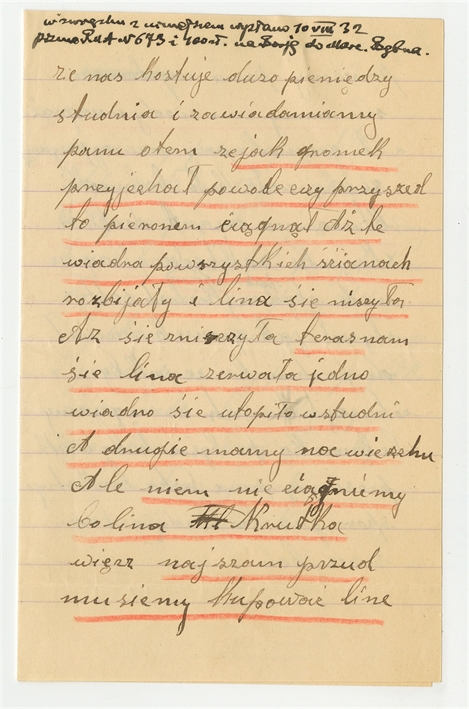 w związku z wnętrzem wysłano 10 VIII 32
pismo R.d.A N 673 i 100 zł. na
że nas kostuje dużo pieniędzy
studnia i zawiadamiamy
panu otem że jak gromek
przyjechał powode czy przyszed
to pieronem ciągnął Aż te
wiadra powszystkich ścianach
rozbijały i lina się niszyła
Aż się zniszyła teras nam
się lina zerwała jedno
wiadno się utopiło wstudni
A drugie mamy na wierzchu
Ale niem nie ciągnimy
bo lina Krutka
więsz najszam przud
musiemy kupować line